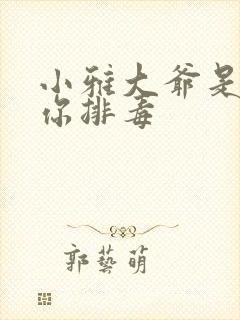 小雅大爷是
你排毒
郭藝萌